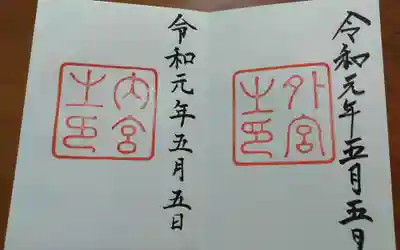 令和元年五月五日
外宮之印
令和元年五月五日
内宮之印